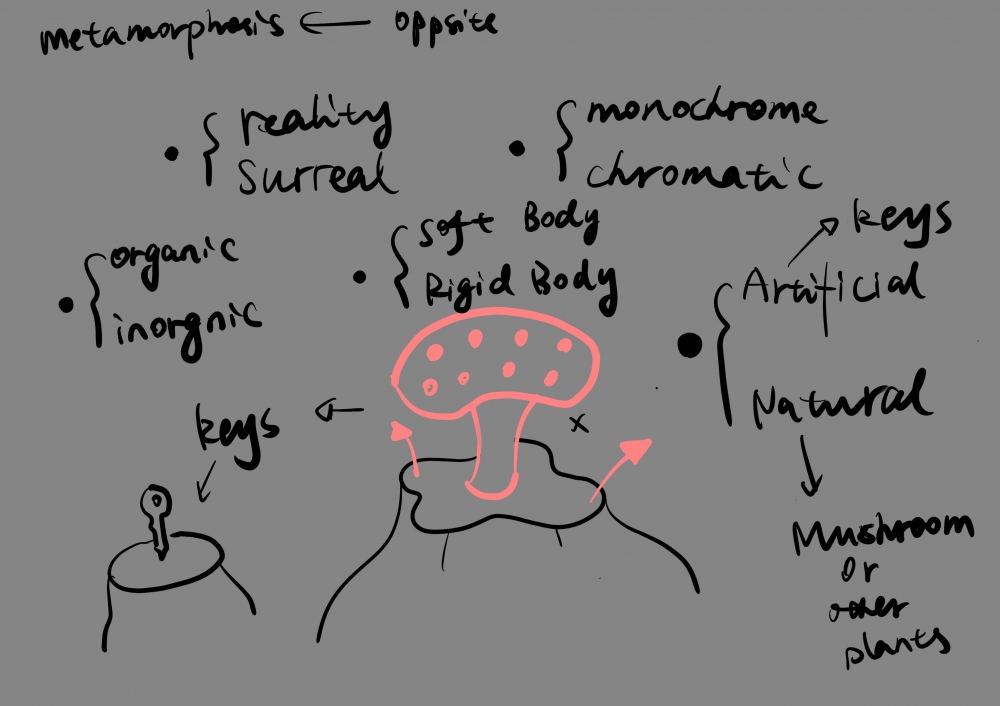 metamorphosis ← oppsite
• { reality
surreal
• { monochrome
chromatic
• { organic
inorgnic
• { Soft Body
Rigid Body
keys
• { Artificial
Natural
keys
x
Mushroom
or
other
plants